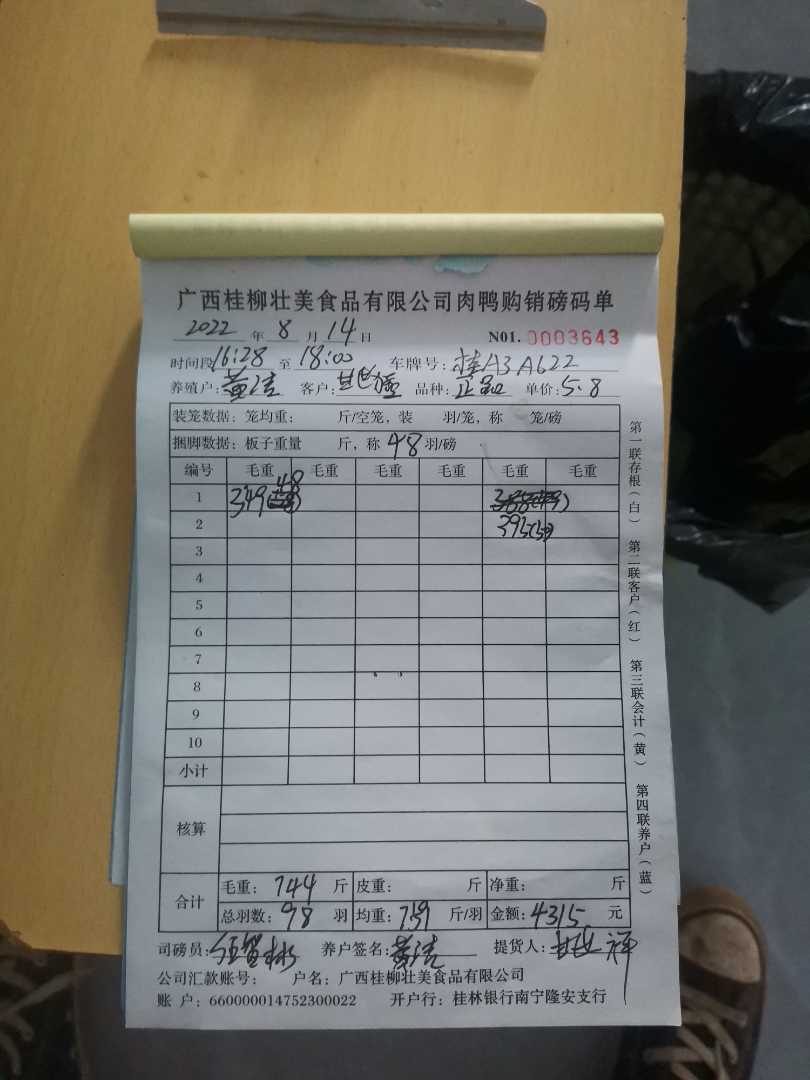 广西桂柳壮美食品有限公司肉鸭购销磅码单
2022 年 8 月 14 日 N01. 0003643
时间段 16:28 至 18:00 车牌号:桂A3A622
养殖户: 黄洁 客户: 品种: 正品 单价: 5.8
装笼数据: 笼均重: 斤/空笼, 装 羽/笼, 称 笼/磅
捆脚数据: 板子重量 斤, 称 48 羽/磅
编号 毛重 毛重 毛重 毛重 毛重 毛重
48
1 349
2 395(50)
3
4
5
6
7
8
9
10
小计
核算
合计
毛重: 744 斤 皮重: 斤 净重: 斤
总羽数: 98 羽 均重: 斤/羽 金额: 4315 元
司磅员: 养户签名: 黄洁 提货人:
公司汇款账号: 户名: 广西桂柳壮美食品有限公司
账 户: 660000014752300022 开户行: 桂林银行南宁隆安支行
第一联存根(白) 第二联客户(红) 第三联会计(黄) 第四联养户(蓝)